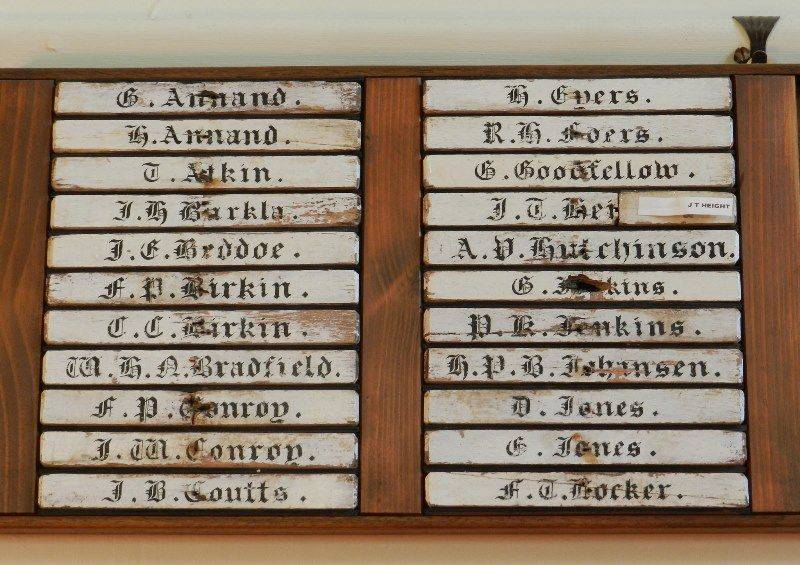 G. Annand.
H. Annand.
T. Atkin.
J. H Barkla.
J. E. Beddoe.
F. P. Birkin.
C. C. Birkin.
W. H. N. Bradfield.
F. P. Conroy.
J. W. Conroy.
J. B. Coutts.
H. Eyers.
R. H. Eyers.
G. Goodfellow.
J. T.
J T HEIGHT
A. V. Hutchinson.
G.
P. R. Jenkins.
H. P. B. Johansen.
D. Jones.
E. Jones.
F. T. Locker.